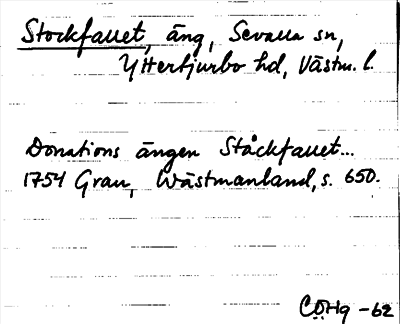 Stockfallet, äng, Sevalla sn,
Yttertjurbo hd, Västm. l.
Donations ängen Ståckfallet...
1754 Grau, Wästmanland, s. 650.
CÖHg -62